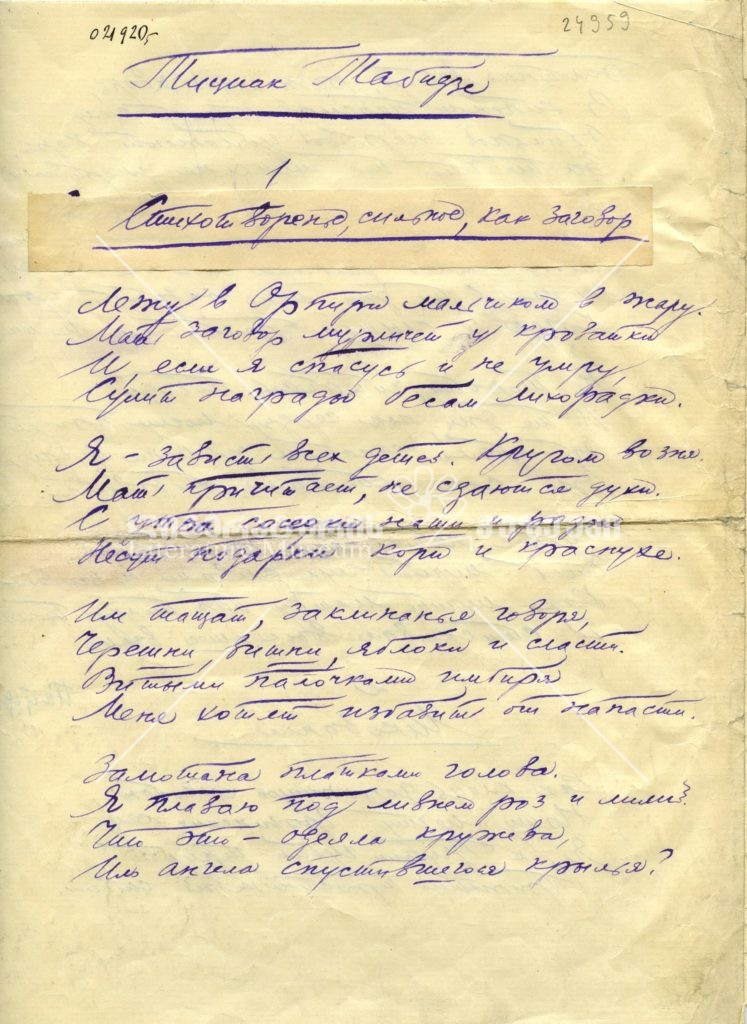 021920,-
24959
Тициан Табидзе
1
Стихотворенье, сильное, как заговор
Лежу в Орпири мальчиком в жару.
Мать заговор мурлычет у кроватки
И, если я спасусь и не умру,
Сулит награды бесам лихорадки.
Я – зависть всех детей. Кругом возня.
Мать причитает, не сдаются духи.
С утра соседки наши и родня
Несут подарки кори и краснухе.
Им тащат, заклинанье говоря,
Черешни, вишни, яблоки и сласти.
Витыми палочками имбиря
Меня хотят избавить от напасти.
Замотана платками голова.
Я плаваю под ливнем роз и лилий.
Что это – одеяла кружева,
Иль ангела спустившегося крылья?